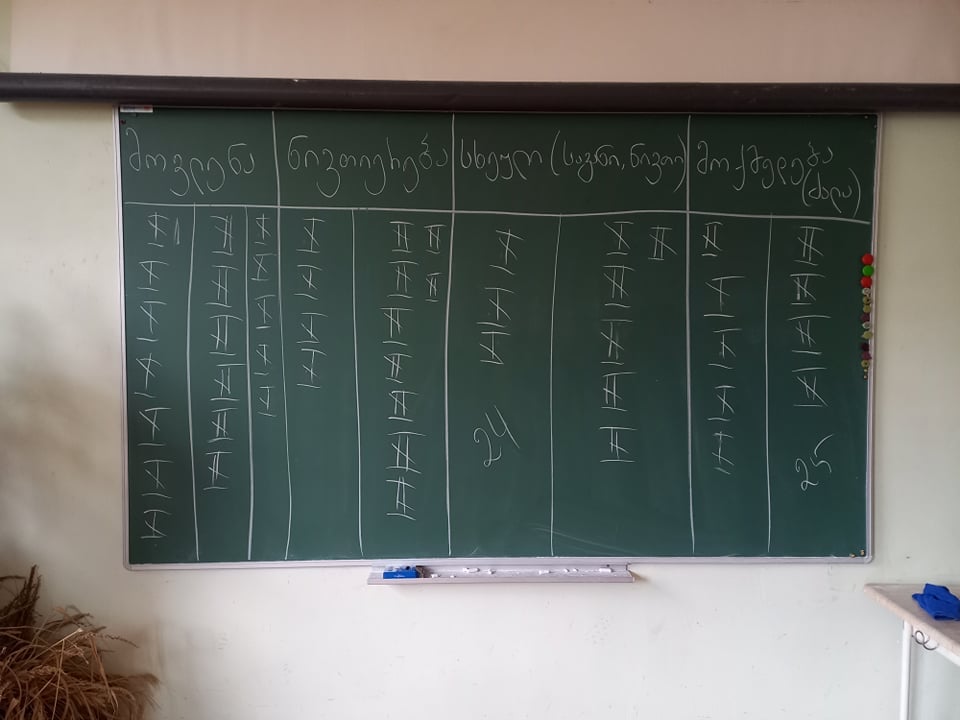 მოვლენა
ნივთიერება
სხეული (საგანი, ნივთი)
მოქმედება
(ძალა)
24
25